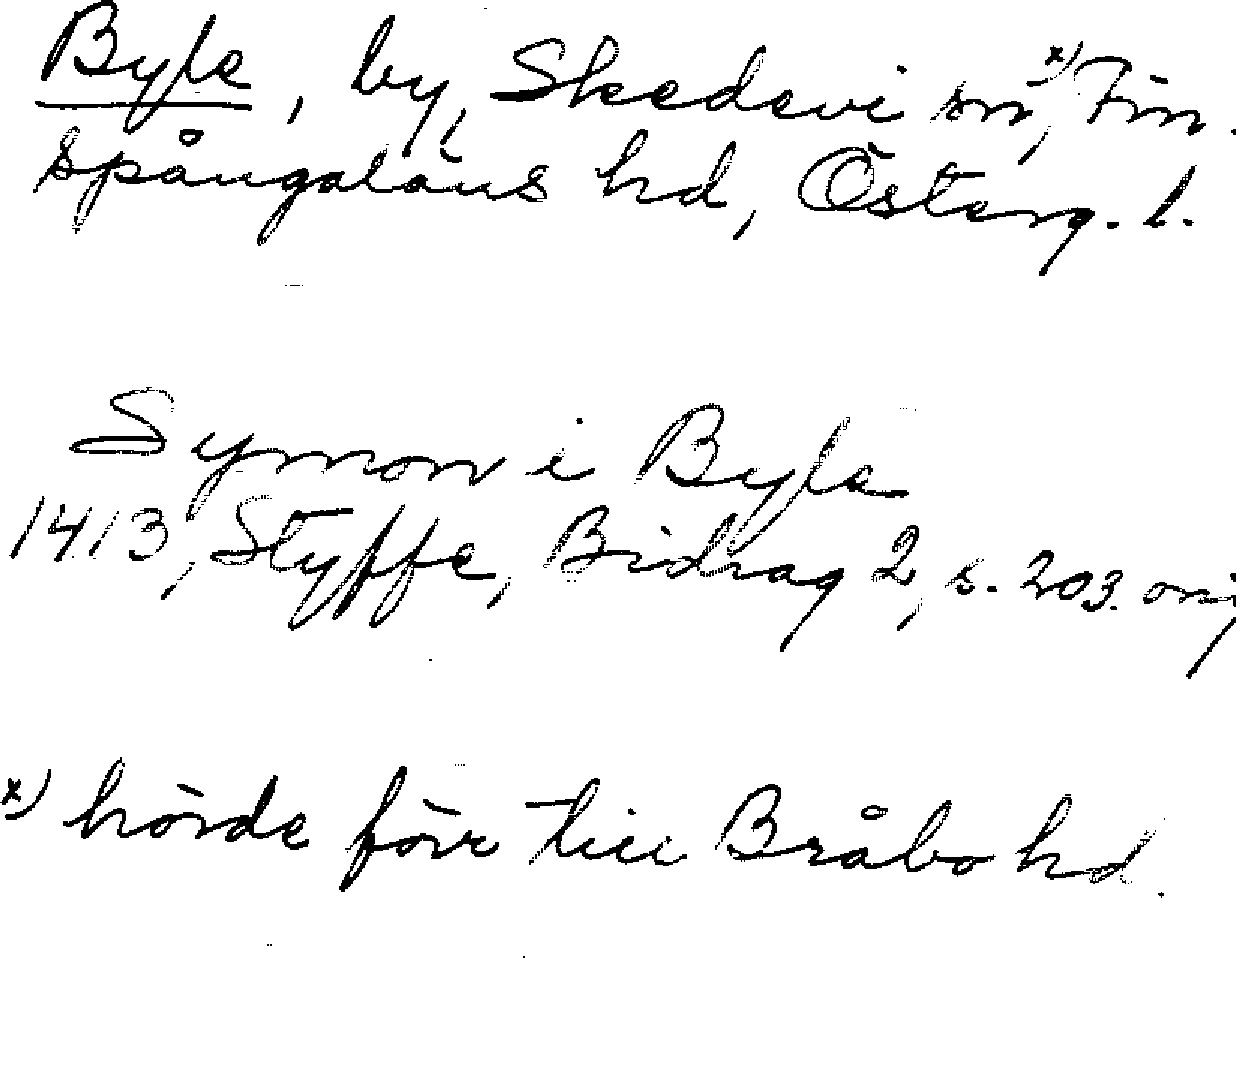 Byle, by, Skedevi sn,x) Fin.
spångaläns hd, Österg. l.
Symon i Byle
1413, Styffe, Bidrag 2, s. 203. orig
x) hörde förr till Bråbo hd.